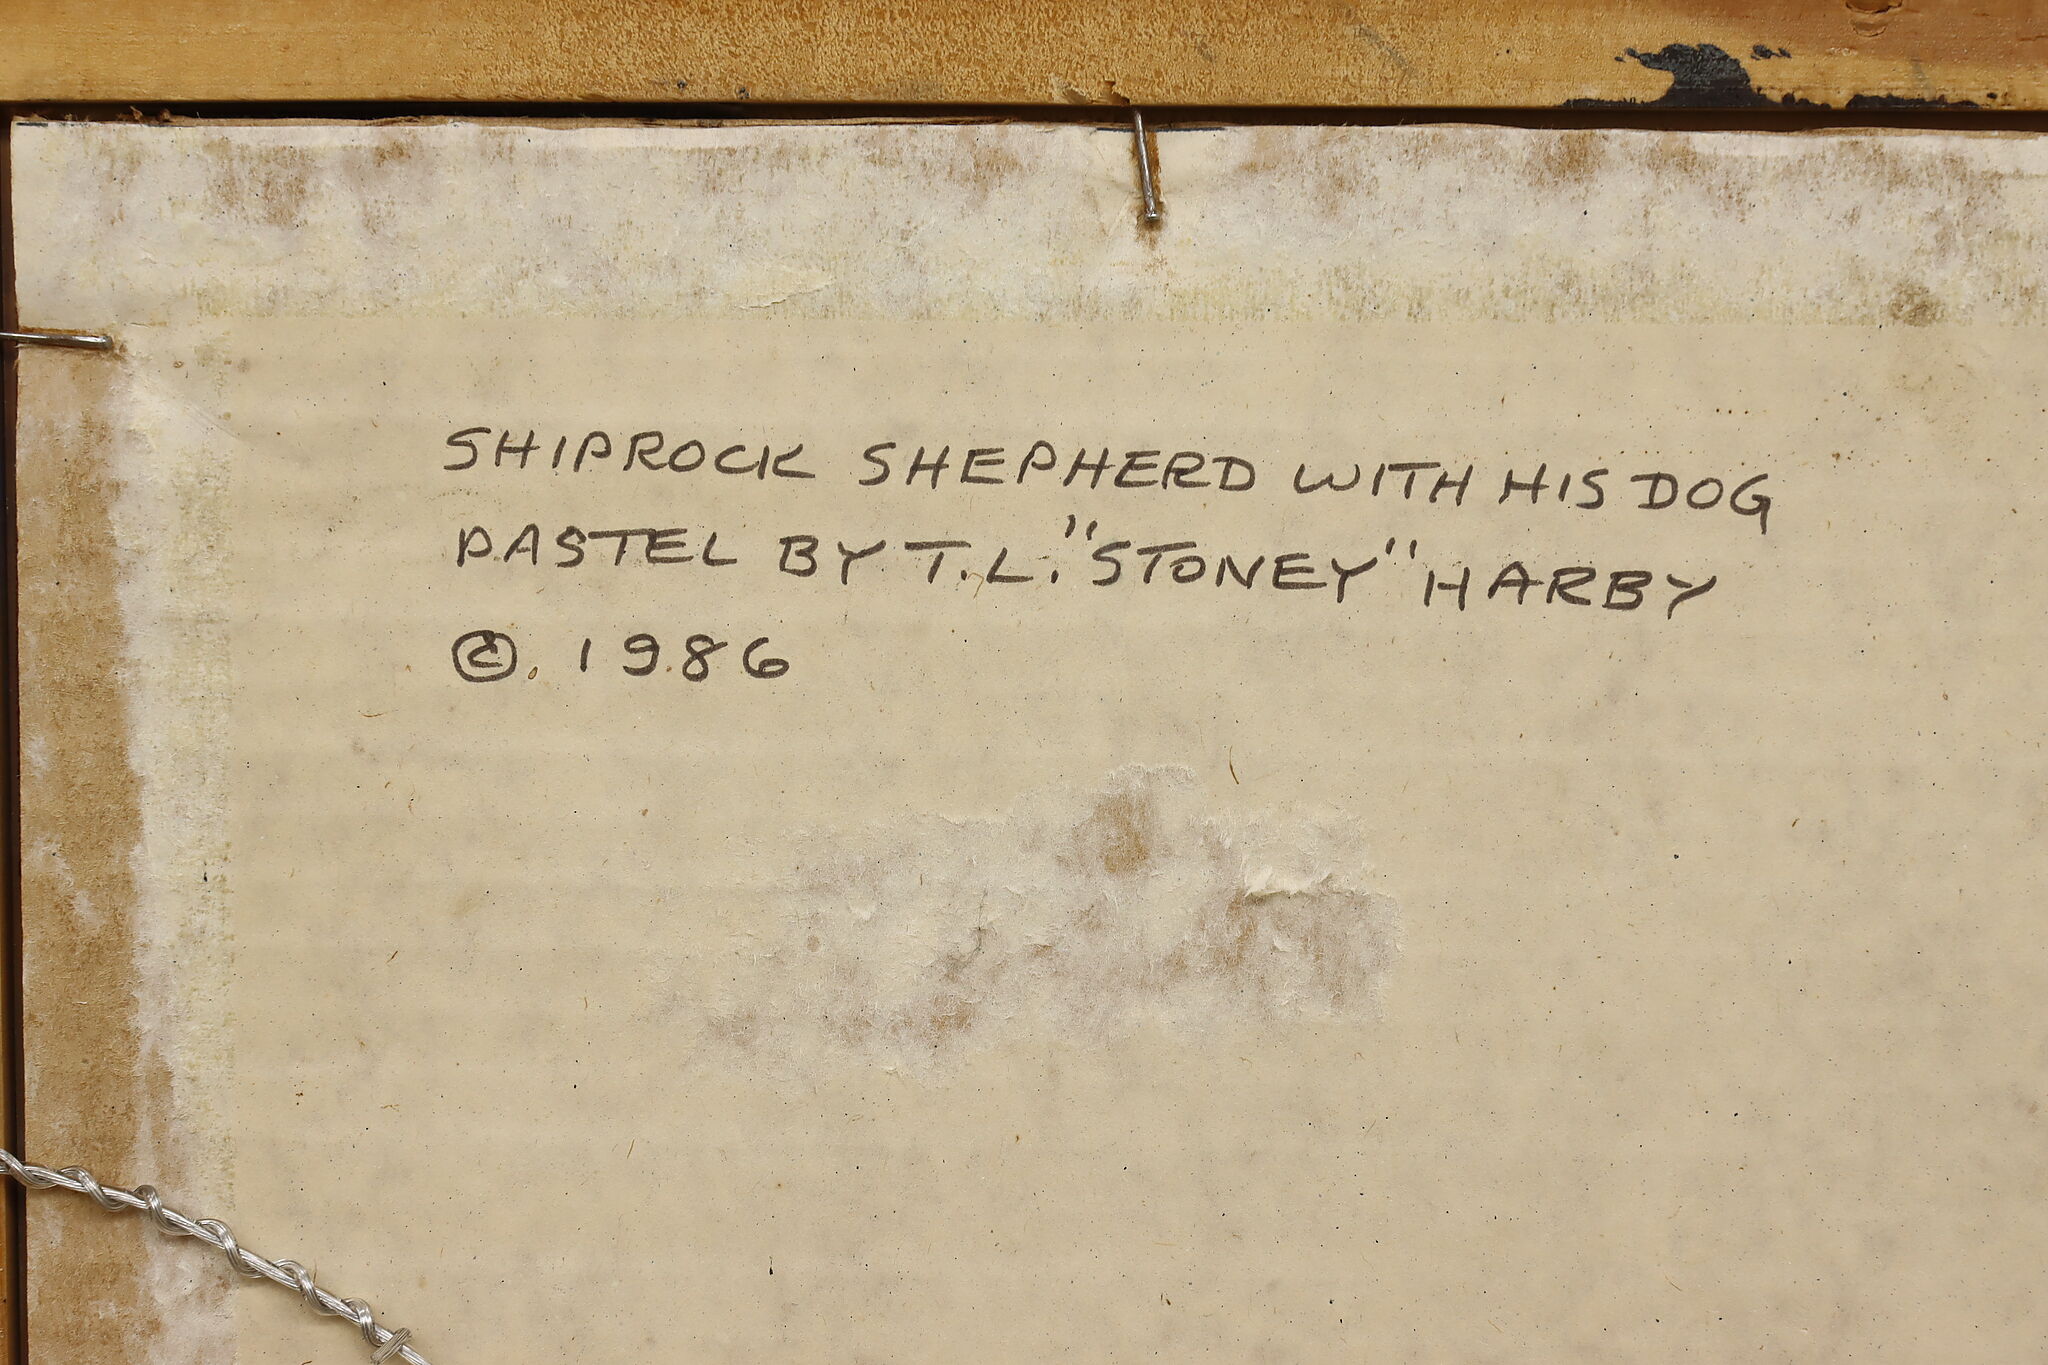 SHIPROCK SHEPHERD WITH HIS DOG
PASTEL BY T.L. "STONEY" HARBY
©. 1986